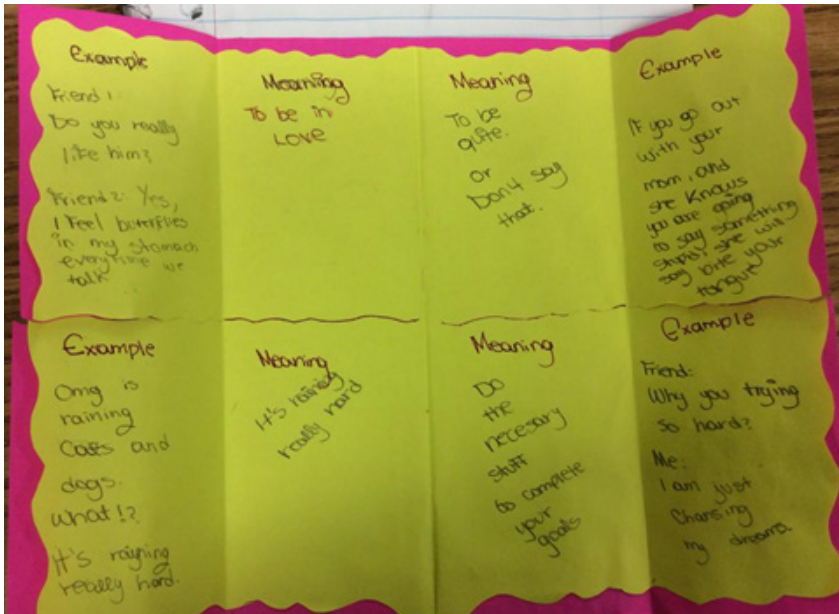 Example
Friend 1:
Do you really
like him?
Friend 2: Yes,
I Feel buterflies
in my stomach
everytime we
talk
Meaning
To be in
Love
Meaning
To be
qiite.
or
Don't say
that.
Example
If you go out
with your
mom, and
she knows
you are going
to say something
stupid, she will
say bite your
tongue
Example
Omg is
raining
Cats and
dogs.
what!?
It's raining
really hard.
Meaning
It's raining
really hard
Meaning
Do
the
necesary
stuff
to complete
your
goals
Example
Friend:
Why you trying
so hard?
Me:
I am just
Chansing
my dreams.